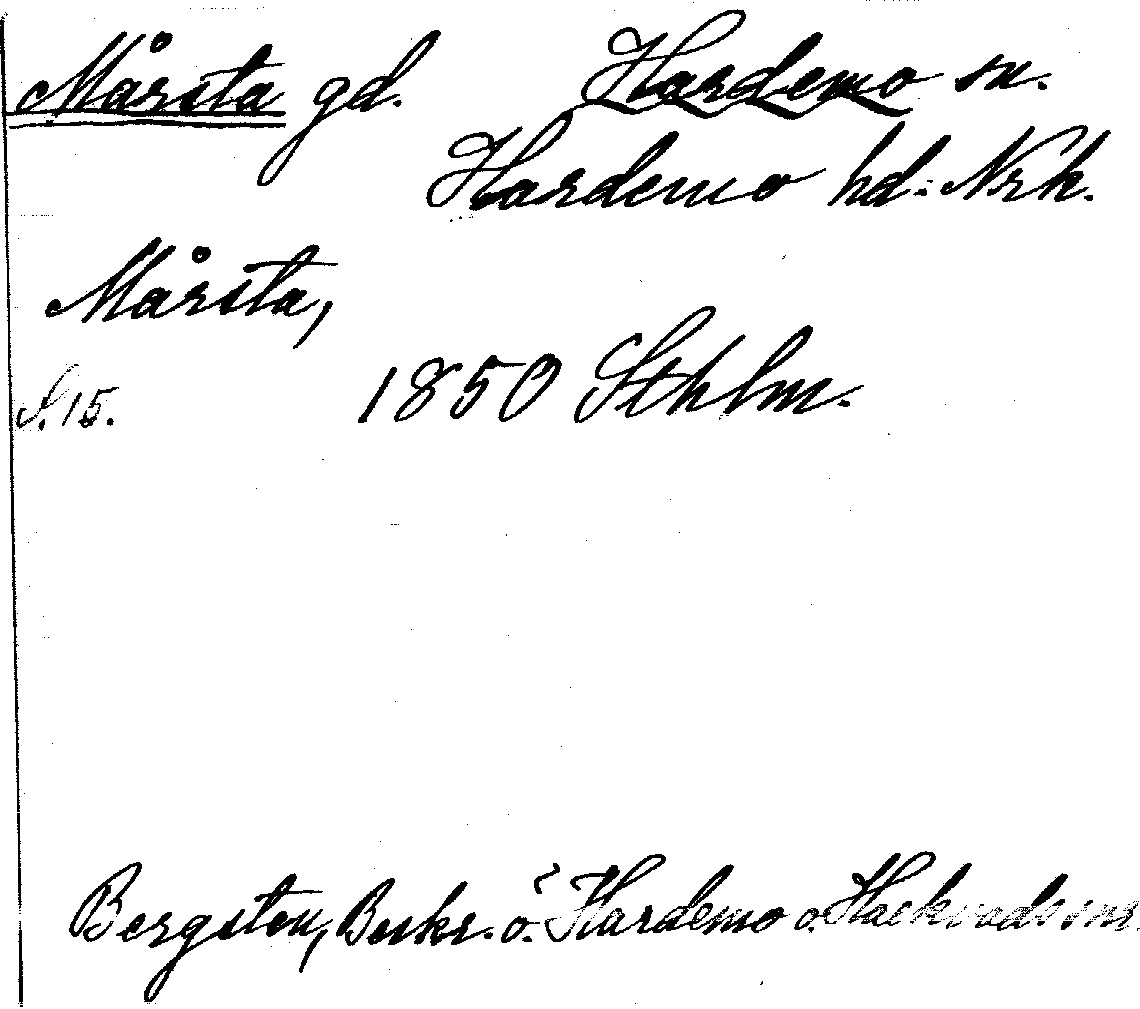 Mårsta gd. Hardemo sn.
Hardemo hd. Nrk.
Mårsta,
S. 15. 1850 Sthlm.
Bergsten, Beskr. ö. Hardemo o. Hackvads snr.